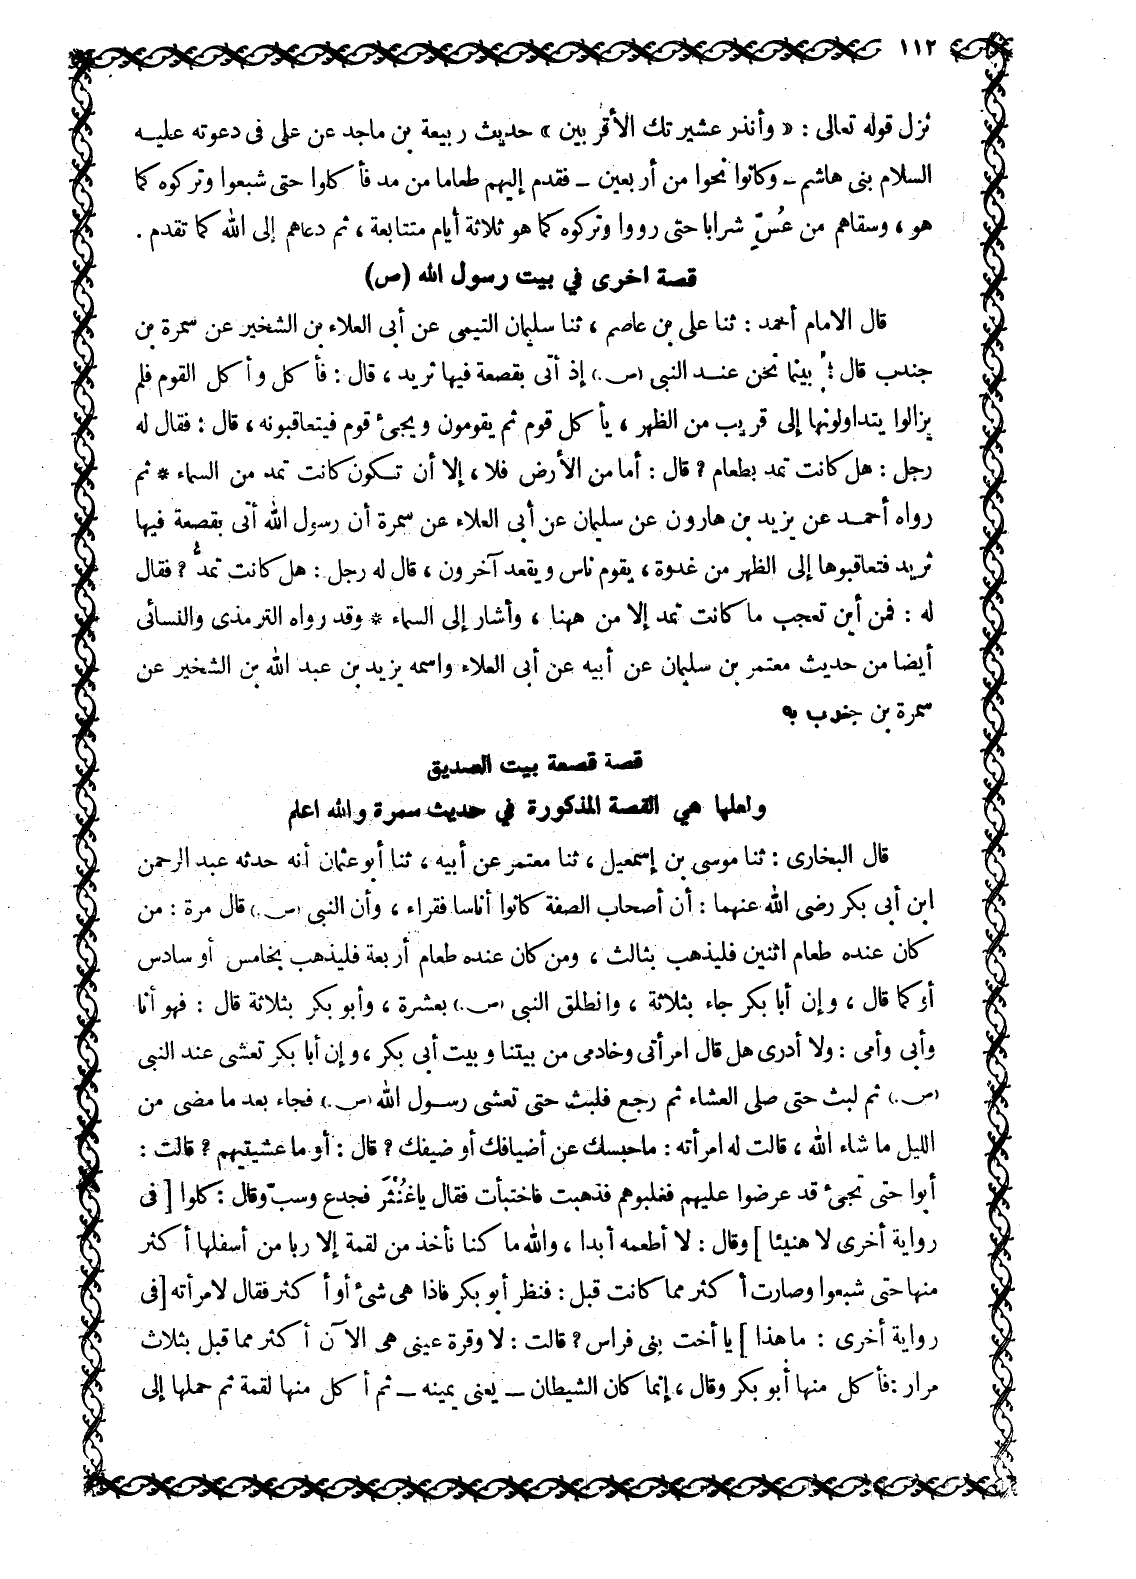 ١١٢
نزل قوله تعالى : « وأنذر عشيرتك الأقربين » حديث ربيعة بن ماجد عن على فى دعوته عليه
السلام بنى هاشم ــ وكانوا نحوا من أربعين ــ فقدم إليهم طعاما من مد فأكلوا حتى شبعوا وتركوه كما
هو ، وسقاهم من عُسٍّ شرابا حتى رووا وتركوه كما هو ثلاثة أيام متتابعة ، ثم دعاهم إلى الله كما تقدم .
قصة اخرى في بيت رسول الله (ص)
قال الامام أحمد : ثنا على بن عاصم ، ثنا سليمان التيمى عن أبى العلاء بن الشخير عن سمرة بن
جندب قال : بينما نحن عند النبى (ص.) إذ أتى بقصعة فيها ثريد ، قال : فأكل وأكل القوم فلم
يزالوا يتداولونها إلى قريب من الظهر ، يأكل قوم ثم يقومون ويجىء قوم فيتعاقبونه ، قال : فقال له
رجل : هل كانت تمد بطعام ؟ قال : أما من الأرض فلا ، إلا أن تكون كانت تمد من السماء * ثم
رواه أحمد عن يزيد بن هارون عن سليمان عن أبى العلاء عن سمرة أن رسول الله أتى بقصعة فيها
ثريد فتعاقبوها إلى الظهر من غدوة ، يقوم ناس ويقعد آخرون ، قال له رجل : هل كانت تمدُّ ؟ فقال
له : فمن أين تعجب ما كانت تمد إلا من ههنا ، وأشار إلى السماء * وقد رواه الترمذى والنسائى
أيضا من حديث معتمر بن سليمان عن أبيه عن أبى العلاء واسمه يزيد بن عبد الله بن الشخير عن
سمرة بن جندب به
قصة قصعة بيت الصديق
ولعلها هي القصة المذكورة في حديث سمرة والله اعلم
قال البخارى : ثنا موسى بن إسمعيل ، ثنا معتمر عن أبيه ، ثنا أبو عثمان أنه حدثه عبد الرحمن
ابن أبى بكر رضى الله عنهما : أن أصحاب الصفة كانوا أناسا فقراء ، وأن النبى (ص.) قال مرة : من
كان عنده طعام اثنين فليذهب بثالث ، ومن كان عنده طعام أربعة فليذهب بخامس أو سادس
أو كما قال ، وإن أبا بكر جاء بثلاثة ، وانطلق النبى (ص.) بعشرة ، وأبو بكر بثلاثة قال : فهو أنا
وأبى وأمى : ولا أدرى هل قال امرأتى وخادمى من بيتنا وبيت أبى بكر ، وإن أبا بكر تعشى عند النبى
(ص.) ثم لبث حتى صلى العشاء ثم رجع فلبث حتى تعشى رسول الله (ص.) فجاء بعد ما مضى من
الليل ما شاء الله ، قالت له امرأته : ما حبسك عن أضيافك أو ضيفك ؟ قال : أو ما عشيتيهم ؟ قالت :
أبوا حتى تجىء قد عرضوا عليهم فغلبوهم فذهبت فاختبأت فقال ياغُنْثَر فجدع وسبّ وقال : كلوا [ فى
رواية أخرى لا هنيئا ] وقال : لا أطعمه أبدا ، والله ما كنا نأخذ من لقمة إلا ربا من أسفلها أكثر
منها حتى شبعوا وصارت أكثر مما كانت قبل : فنظر أبو بكر فاذا هى شىء أو أكثر فقال لامرأته [ فى
رواية أخرى : ما هذا ] يا أخت بنى فراس ؟ قالت : لا وقرة عينى هى الآن أكثر مما قبل بثلاث
مرار : فأكل منها أبو بكر وقال ، إنما كان الشيطان ــ يعنى يمينه ــ ثم أكل منها لقمة ثم حملها إلى